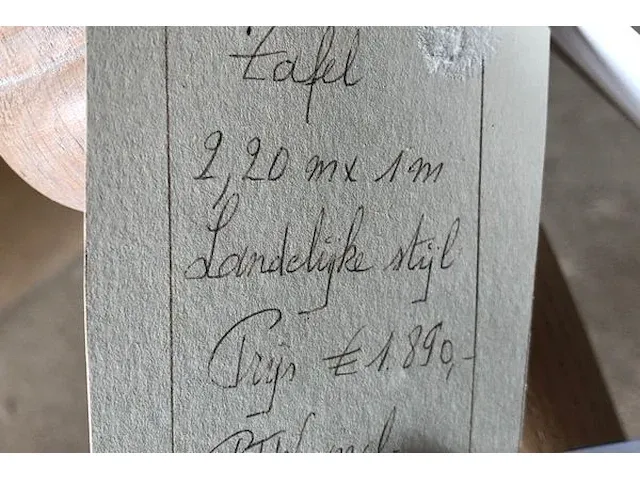 tafel
2,20 m x 1 m
Landelijke stijl
Prijs € 1.890,-
BTW incl.